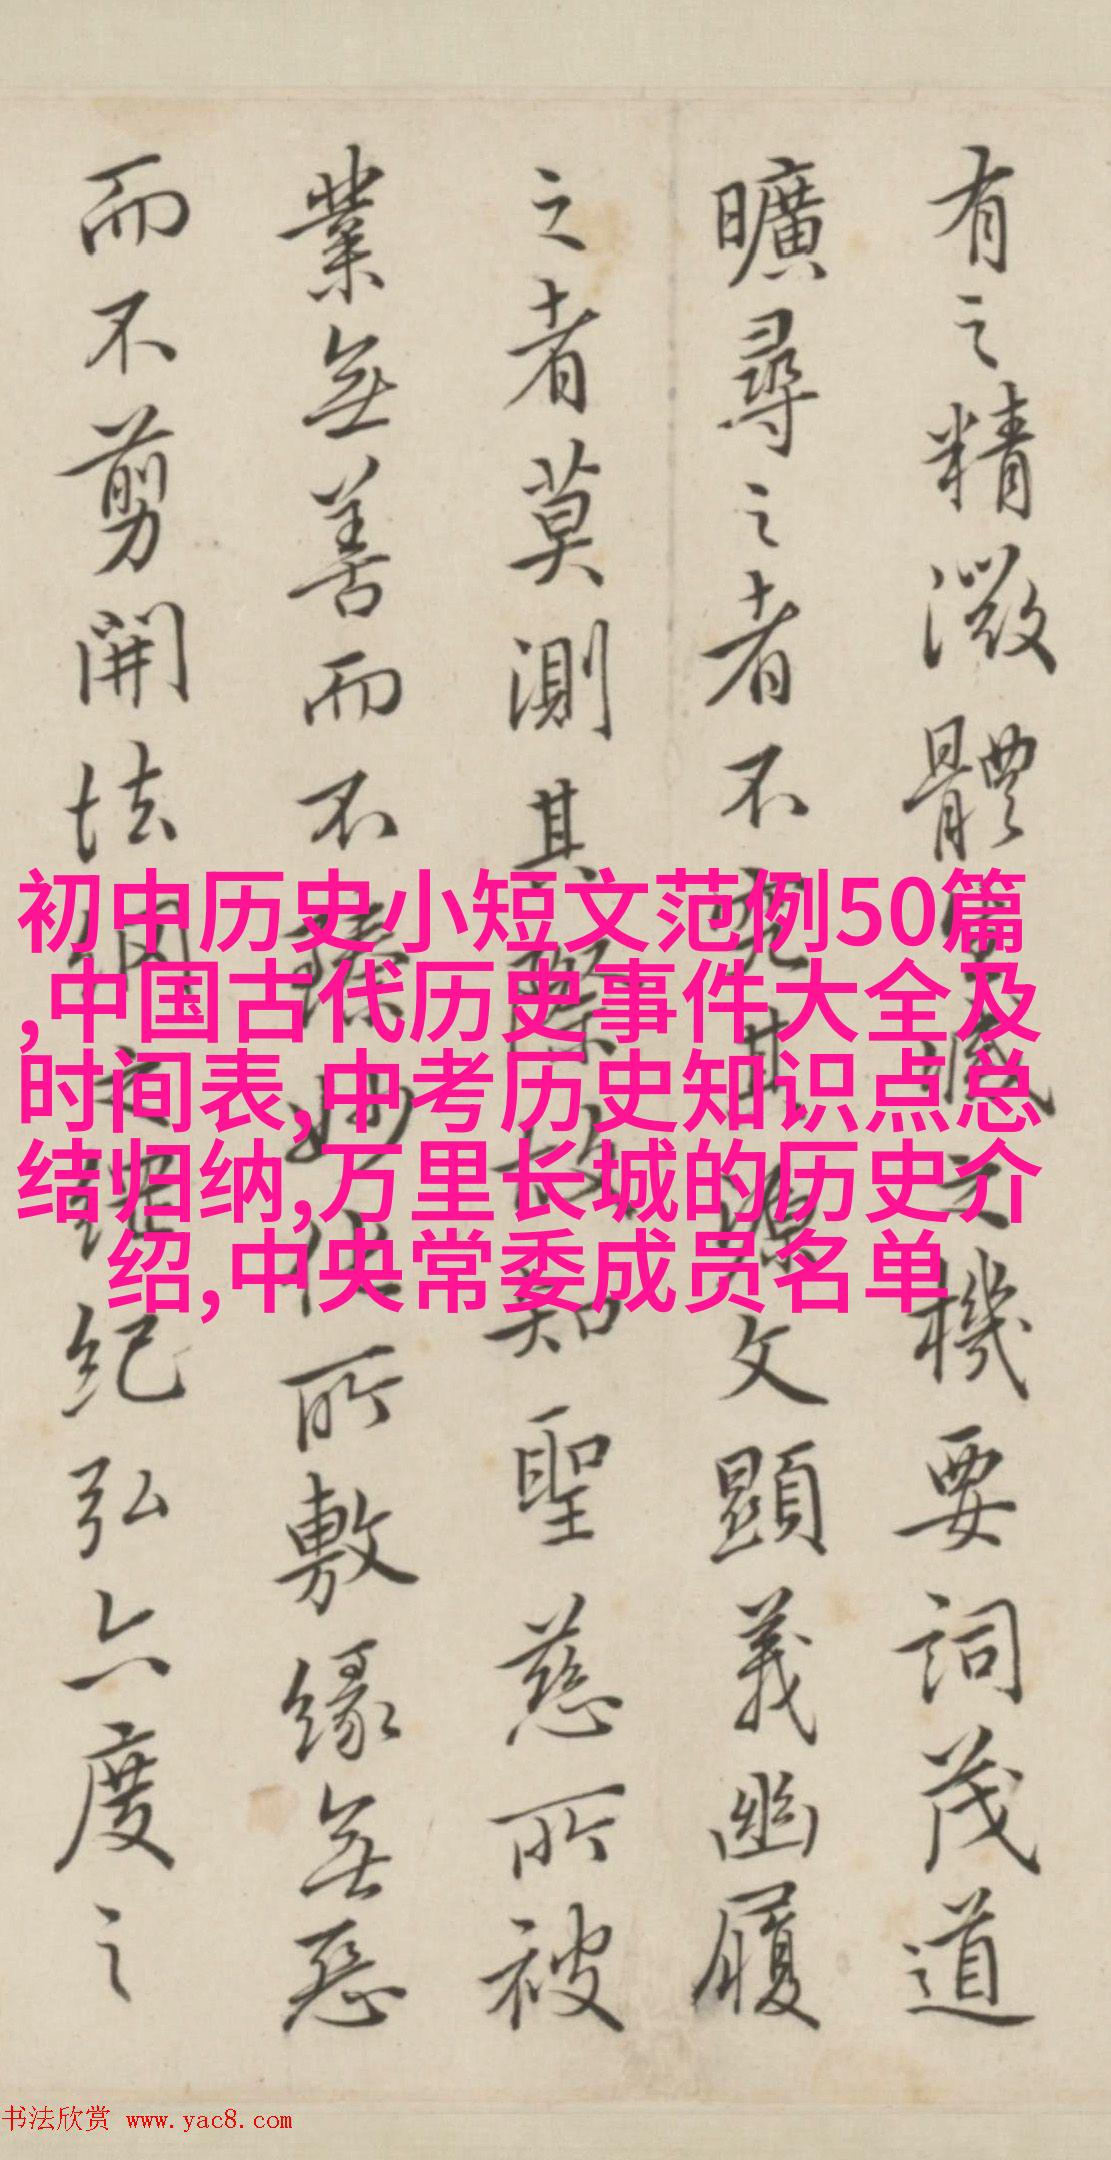 有之精微體生滅之機要詞茂道
曠尋之者不究其源文顯義幽履
之者莫測其際故知聖慈所被
業無善而不臻妙化所敷緣無惡
而不剪開法網之綱紀弘六度之
初中历史小短文范例50篇
,中国古代历史事件大全及
时间表,中考历史知识点总
结归纳,万里长城的历史介
绍,中央常委成员名单
书法欣赏 www.yac8.com